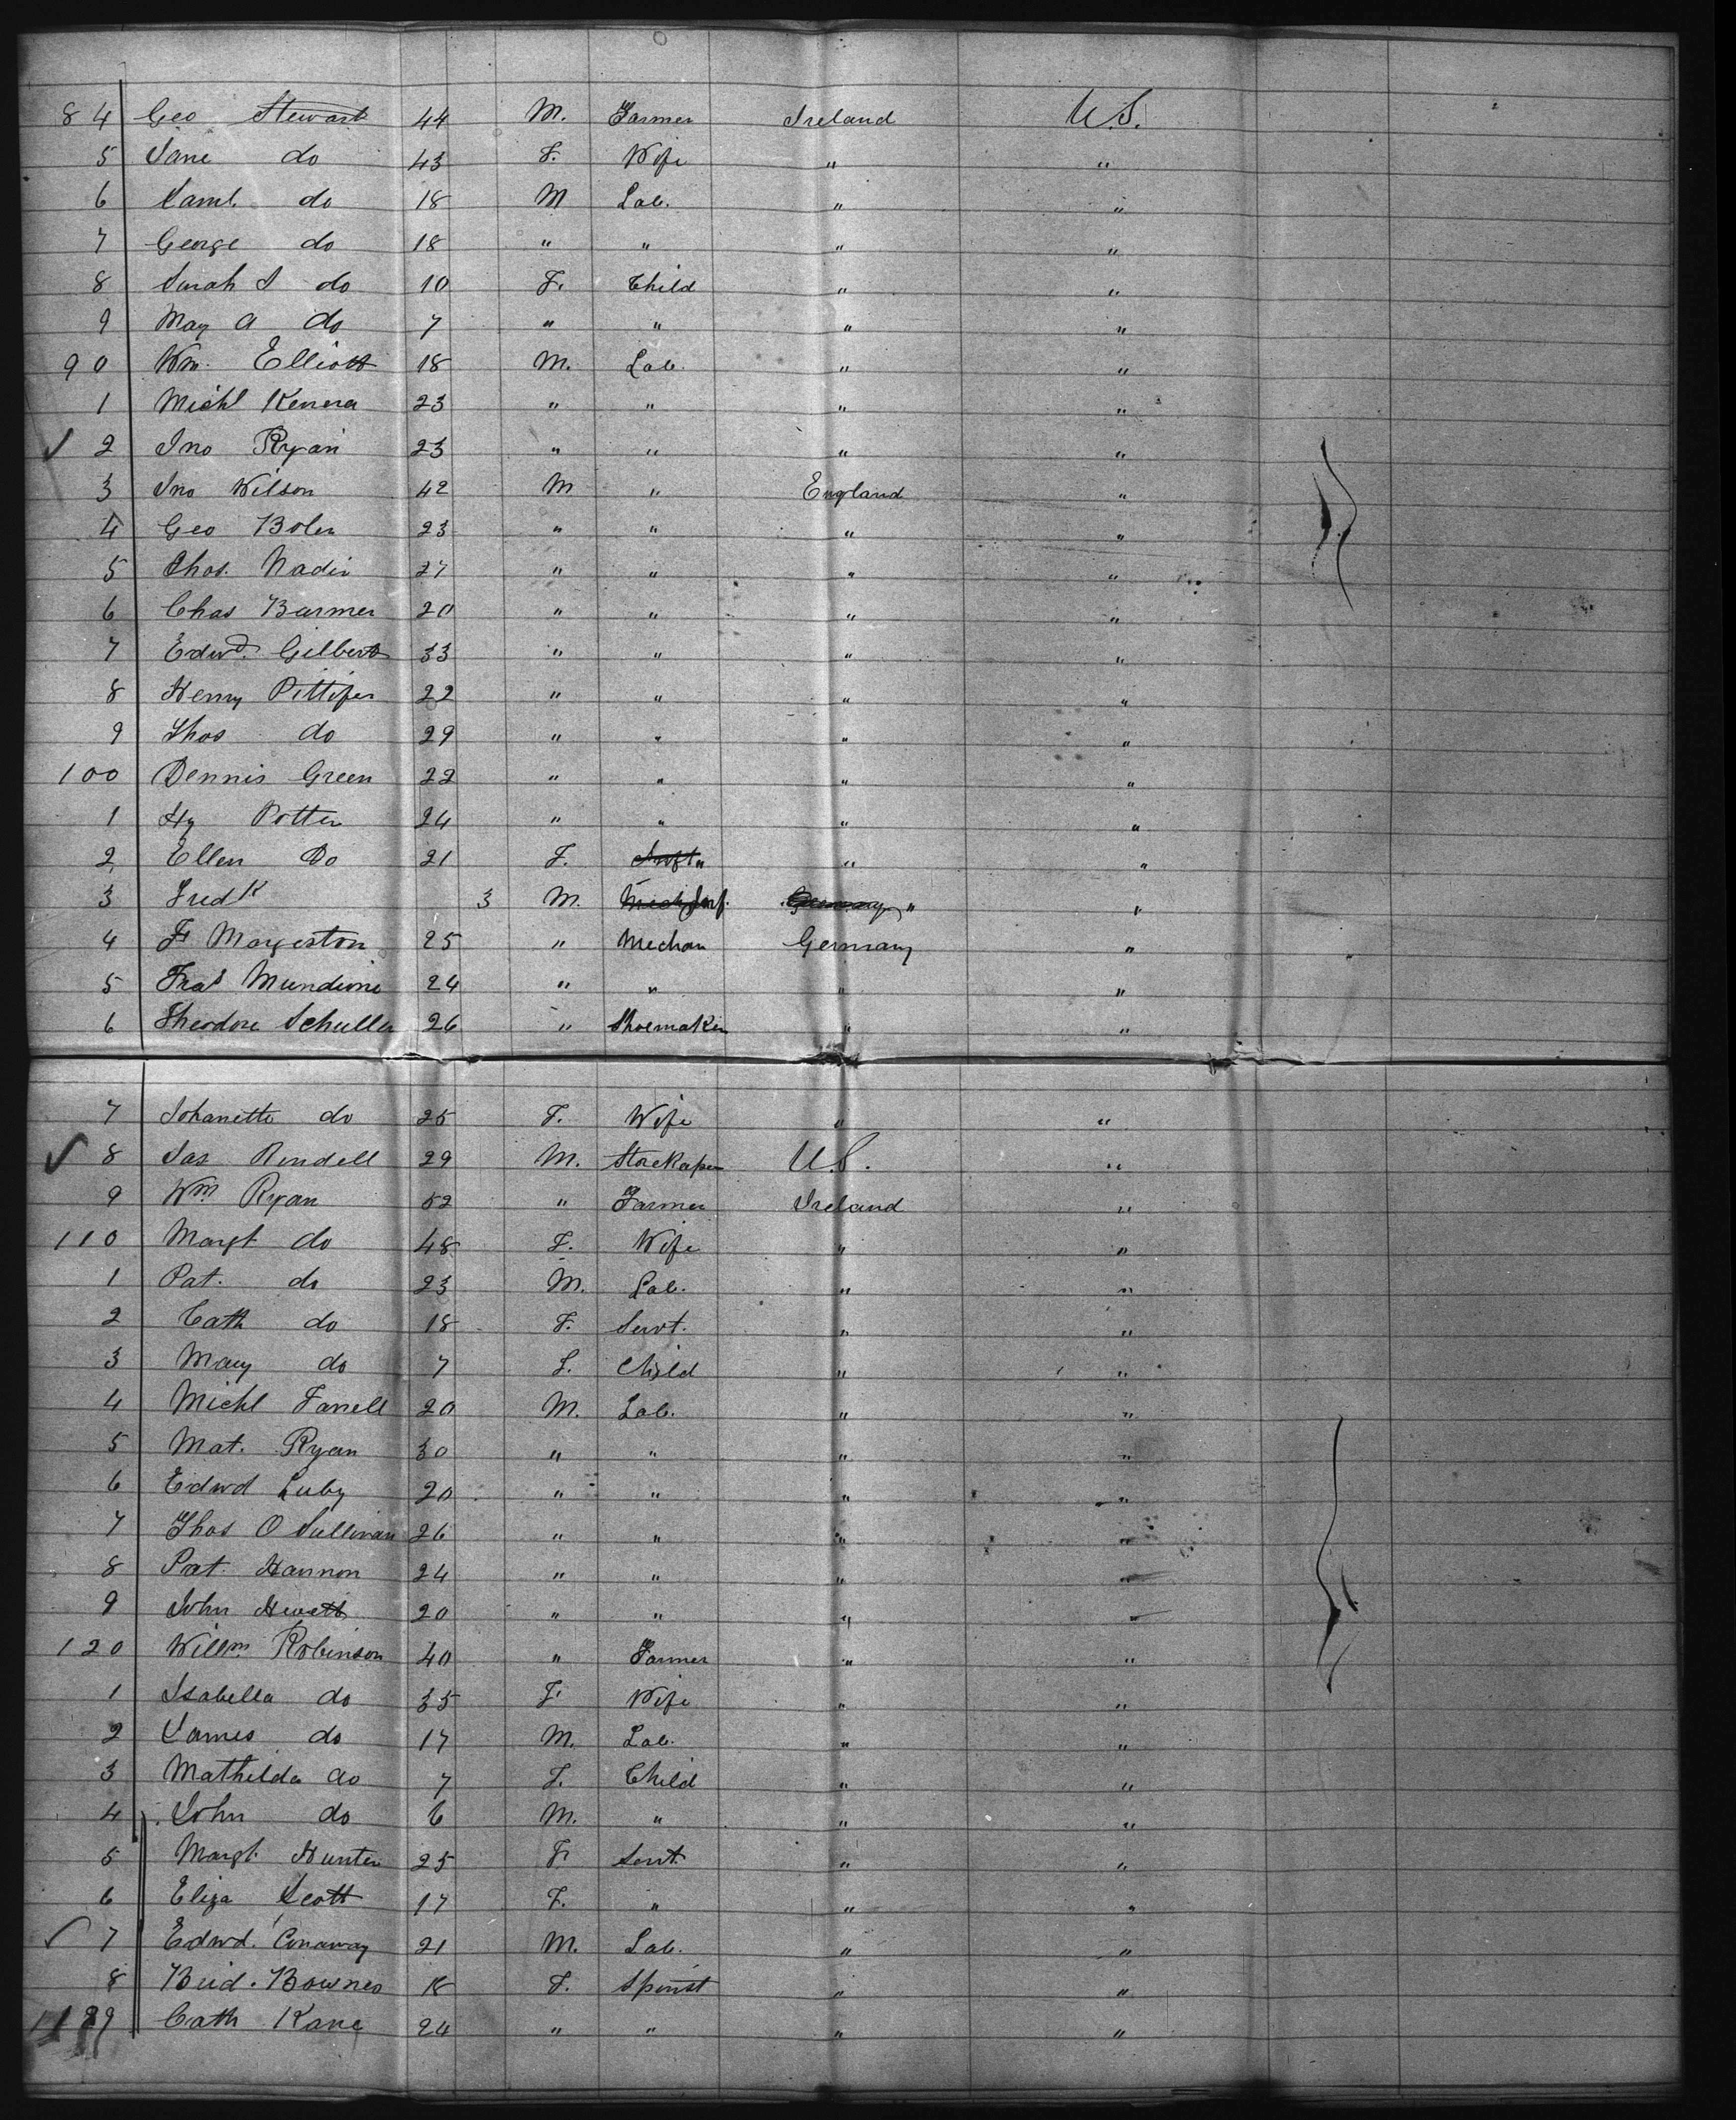 84 Geo Stewart 44 M. Farmer Ireland U.S.
5 Jane do 43 F. Wife " "
6 Saml. do 18 M Lab. " "
7 George do 18 " " " "
8 Sarah J do 10 F. Child " "
9 May A do 7 " " " "
90 Wm. Elliott 18 M. Lab. " "
1 Michl Kenna 23 " " " "
✓ 2 Jno Ryan 23 " " " "
3 Jno Wilson 42 M " England "
4 Geo Bolen 23 " " " "
5 Chas. Nadin 27 " " " "
6 Chas Burmer 20 " " " "
7 Edwd. Gilbert 33 " " " "
8 Henry Pittifer 22 " " " "
9 Thos do 29 " " " "
100 Dennis Green 22 " " " "
1 Hy Potter 24 " " " "
2 Ellen Do 21 F. " " "
3 Fredk 3 M. Inf. Germany " "
4 F Margeston 25 " Mechan Germany "
5 Fras Mundime 24 " " " "
6 Theodore Schuller 26 " Shoemaker " "
7 Johanette do 25 F. Wife " "
✓ 8 Jas Rendell 29 M. Storekeper U.S. "
9 Wm Ryan 52 " Farmer Ireland "
110 Margt do 48 F. Wife " "
1 Pat. do 23 M. Lab. " "
2 Cath do 18 F. Servt. " "
3 Mary do 7 F. Child " "
4 Michl Farrell 20 M. Lab. " "
5 Mat. Ryan 30 " " " "
6 Edwd Luby 20 " " " "
7 Thos O Sullivan 26 " " " "
8 Pat. Hannon 24 " " " "
9 John Hewett 20 " " " "
120 Willm. Robinson 40 " Farmer " "
1 Isabella do 35 F. Wife " "
2 James do 17 M. Lab. " "
3 Mathilda do 7 F. Child " "
4 John do 6 M. " " "
5 Margt. Hunter 25 F. Servt. " "
6 Eliza Scott 17 F. " " "
✓ 7 Edwd. Conaway 21 M. Lab. " "
8 Brid. Bownes 18 F. Spinst " "
9 Cath Kane 24 " " " "